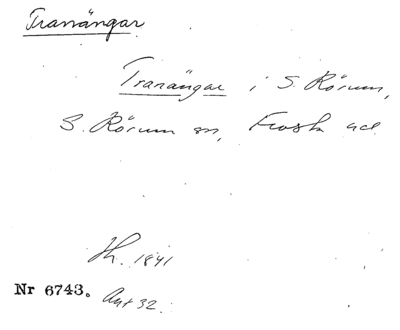 Tranängar
Tranängar i S. Rörum,
S. Rörum sn, Frosta hd.
Jh. 1841
Nr 6743. Ant 32.